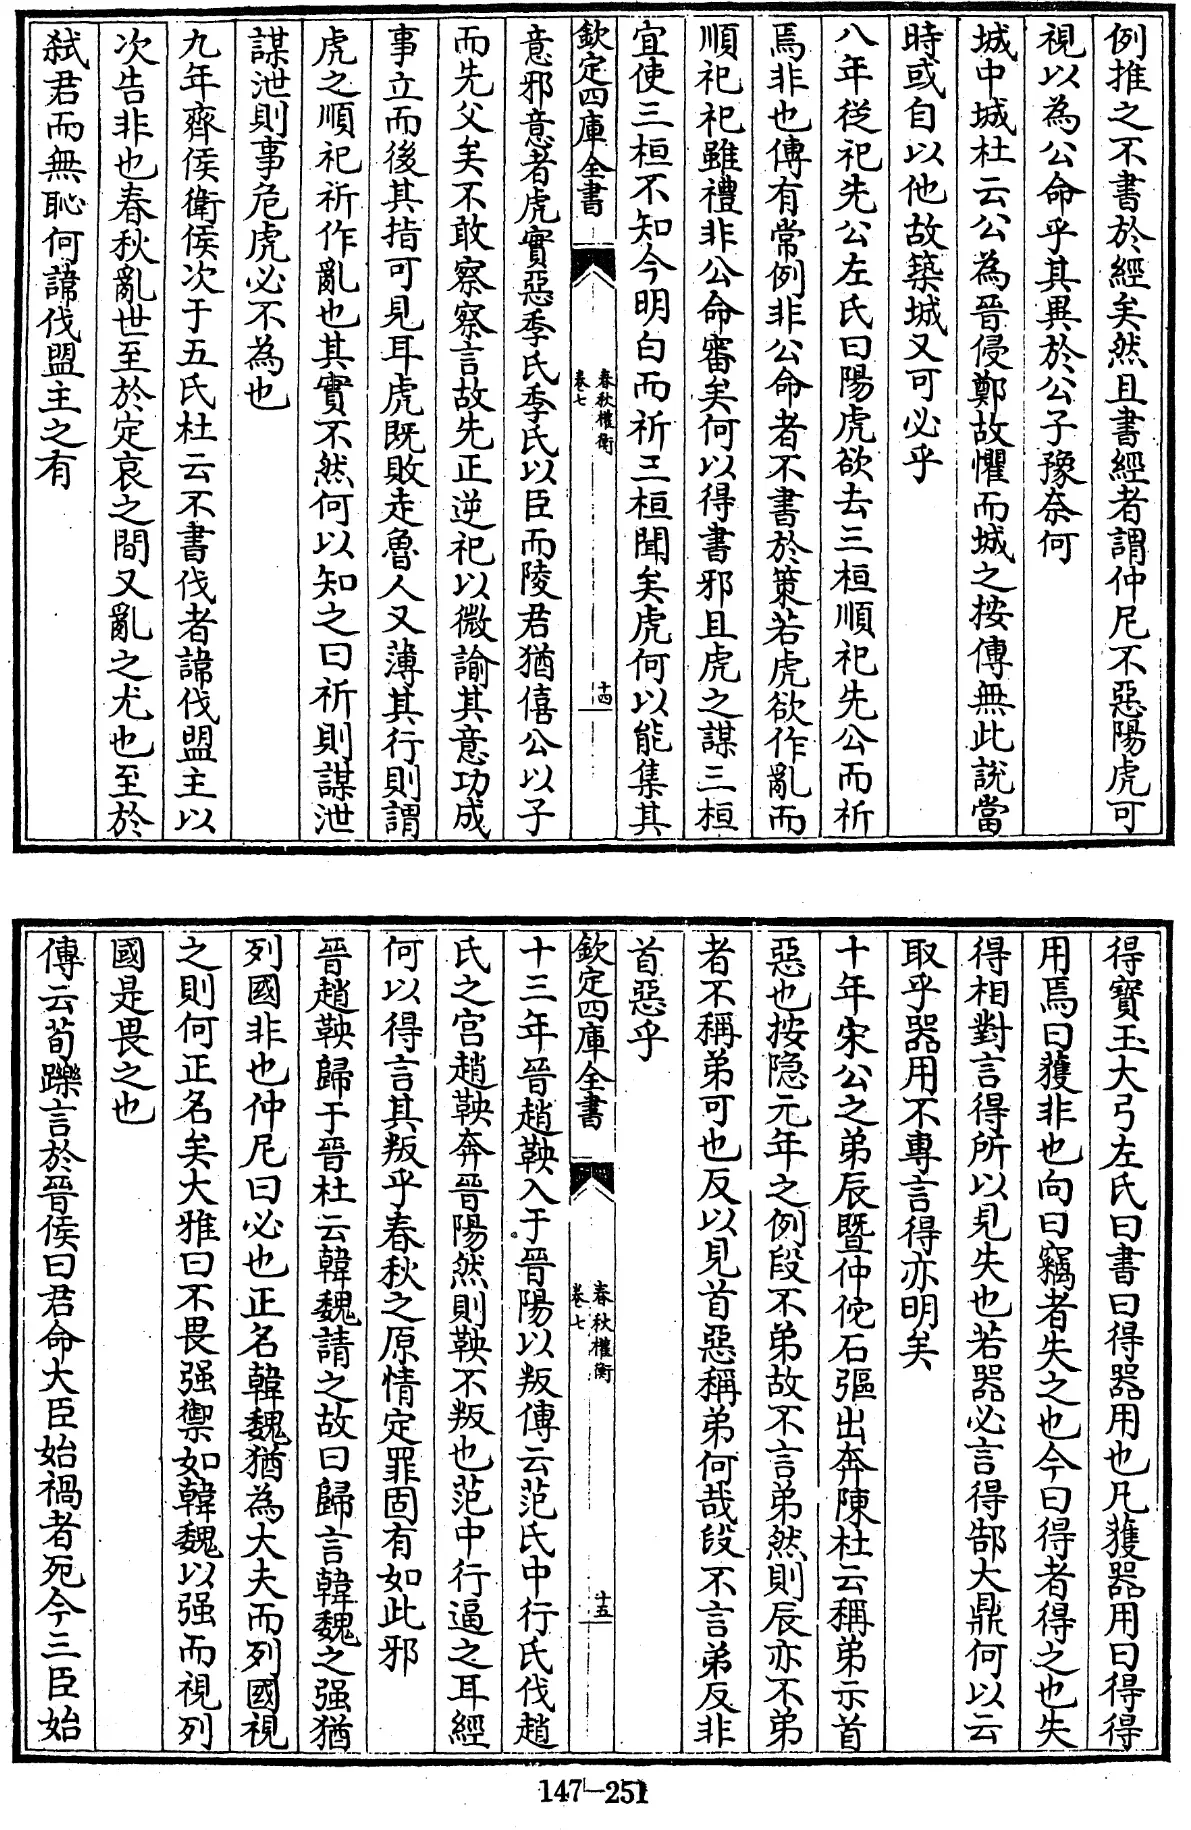 例推之不書於經矣然且書經者謂仲尼不惡陽虎可
視以為公命乎其異於公子豫奈何
城中城杜云公為晉侵鄭故懼而城之按傳無此說當
時或自以他故築城又可必乎
八年從祀先公左氏曰陽虎欲去三桓順祀先公而祈
焉非也傳有常例非公命者不書於策若虎欲作亂而
順祀祀雖禮非公命審矣何以得書邪且虎之謀三桓
宜使三桓不知今明白而祈三桓聞矣虎何以能集其
欽定四庫全書
春秋權衡
卷七
十四
意邪意者虎實惡季氏季氏以臣而陵君猶僖公以子
而先父矣不敢察察言故先正逆祀以微諭其意功成
事立而後其指可見耳虎既敗走魯人又薄其行則謂
虎之順祀祈作亂也其實不然何以知之曰祈則謀泄
謀泄則事危虎必不為也
九年齊侯衛侯次于五氏杜云不書伐者諱伐盟主以
次告非也春秋亂世至於定哀之間又亂之尤也至於
弑君而無恥何諱伐盟主之有
得寶玉大弓左氏曰書曰得器用也凡獲器用曰得得
用焉曰獲非也向曰竊者失之也今曰得者得之也失
得相對言得所以見失也若器必言得郜大鼎何以云
取乎器用不專言得亦明矣
十年宋公之弟辰暨仲佗石彄出奔陳杜云稱弟示首
惡也按隱元年之例段不弟故不言弟然則辰亦不弟
者不稱弟可也反以見首惡稱弟何哉段不言弟反非
首惡乎
欽定四庫全書
春秋權衡
卷七
十五
十三年晉趙鞅入于晉陽以叛傳云范氏中行氏伐趙
氏之宮趙鞅奔晉陽然則鞅不叛也范中行逼之耳經
何以得言其叛乎春秋之原情定罪固有如此邪
晉趙鞅歸于晉杜云韓魏請之故曰歸言韓魏之强猶
列國非也仲尼曰必也正名韓魏猶為大夫而列國視
之則何正名矣大雅曰不畏强禦如韓魏以强而視列
國是畏之也
傳云荀躒言於晉侯曰君命大臣始禍者死今三臣始
147-251